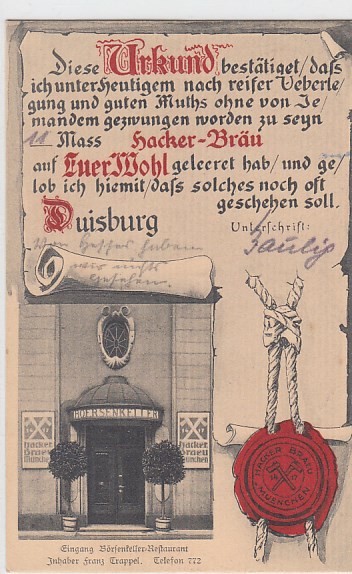 Diese Urkund bestätiget/daß
ich unter Heutigem nach reifer Ueberle/
gung und guten Muths ohne von Je/
mandem gezwungen worden zu seyn
11 Mass Hacker-Bräu
auf Euer Wohl geleeret hab/und ge/
lob ich hiemit/daß solches noch oft
geschehen soll.
Duisburg
Unterschrift:
haben
wir nichts
gesehen.
BOERSENKELLER
Hacker
Braeu
München
Hacker
Braeu
München
HACKER BRÄU
MUENCHEN
Eingang Börsenkeller-Restaurant
Inhaber Franz Trappel. Telefon 772